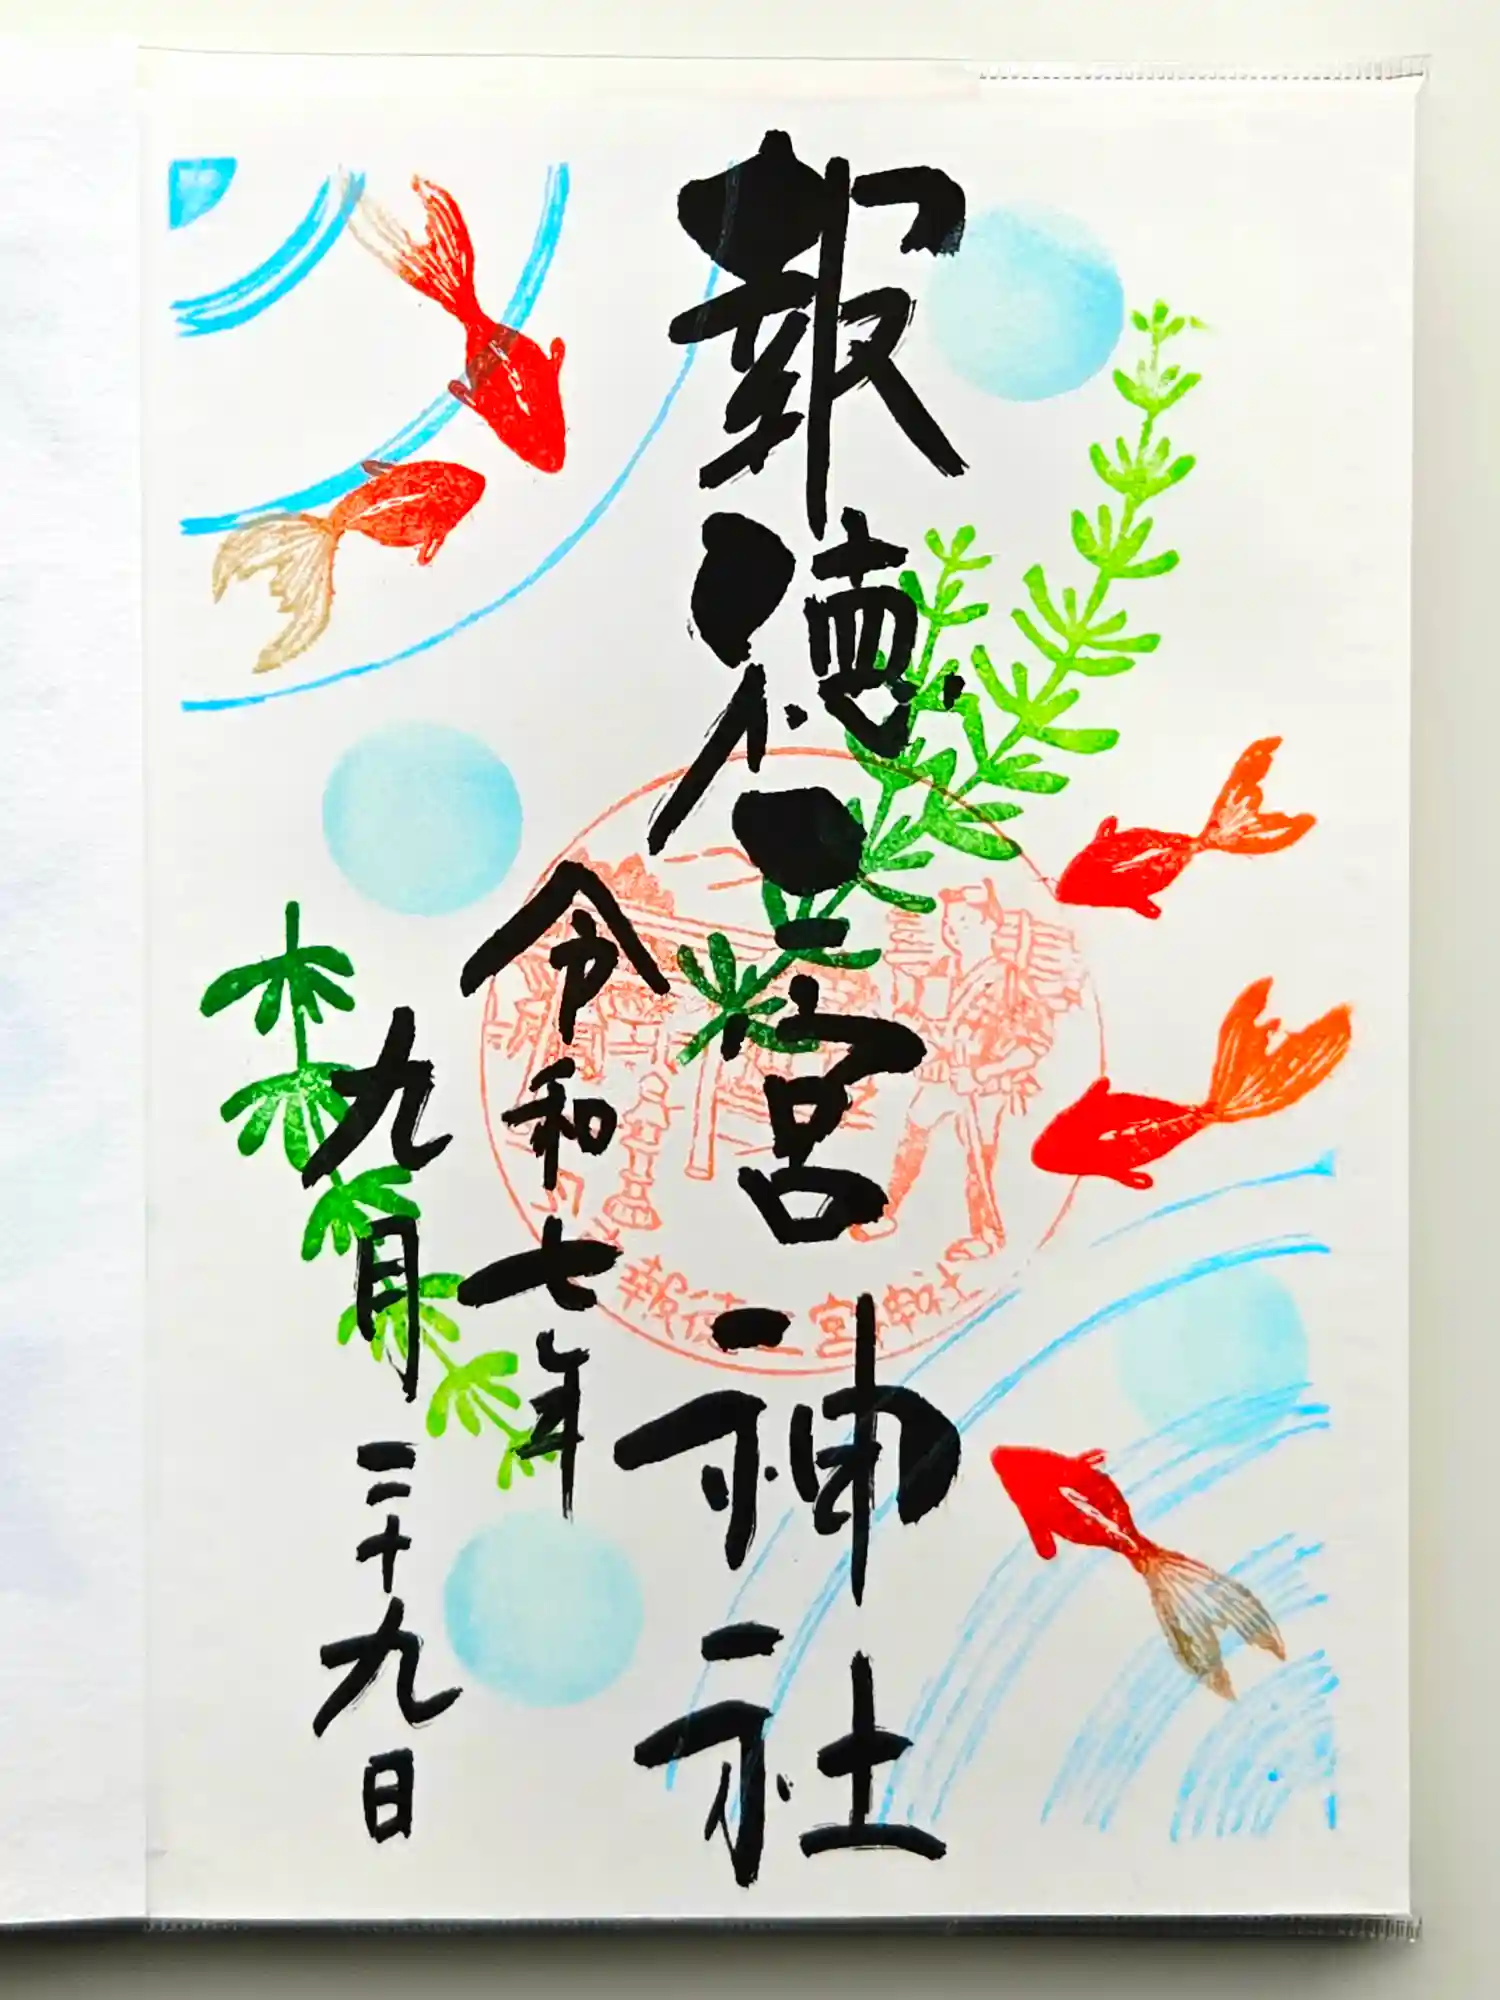 報徳二宮神社
令和七年
九月二十九日
報徳二宮神社